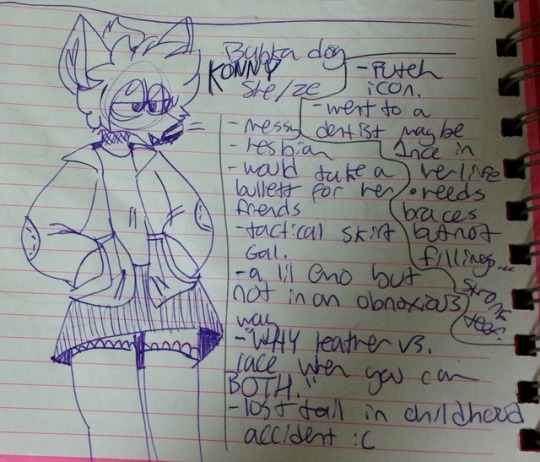 dog
KONNY
She/ze
- Butch
icon.
- went to a
dentist maybe
1nce in
her life
• needs
braces
but not
fillings...
strong
teef.
- messy
- lesbian
- would take a
bullett for her
friends
- tactical skirt
Gal.
- a lil emo but
not in an obnoxious
way
- "WHY leather vs.
lace when you can
BOTH."
- lost tail in childhood
accident :c